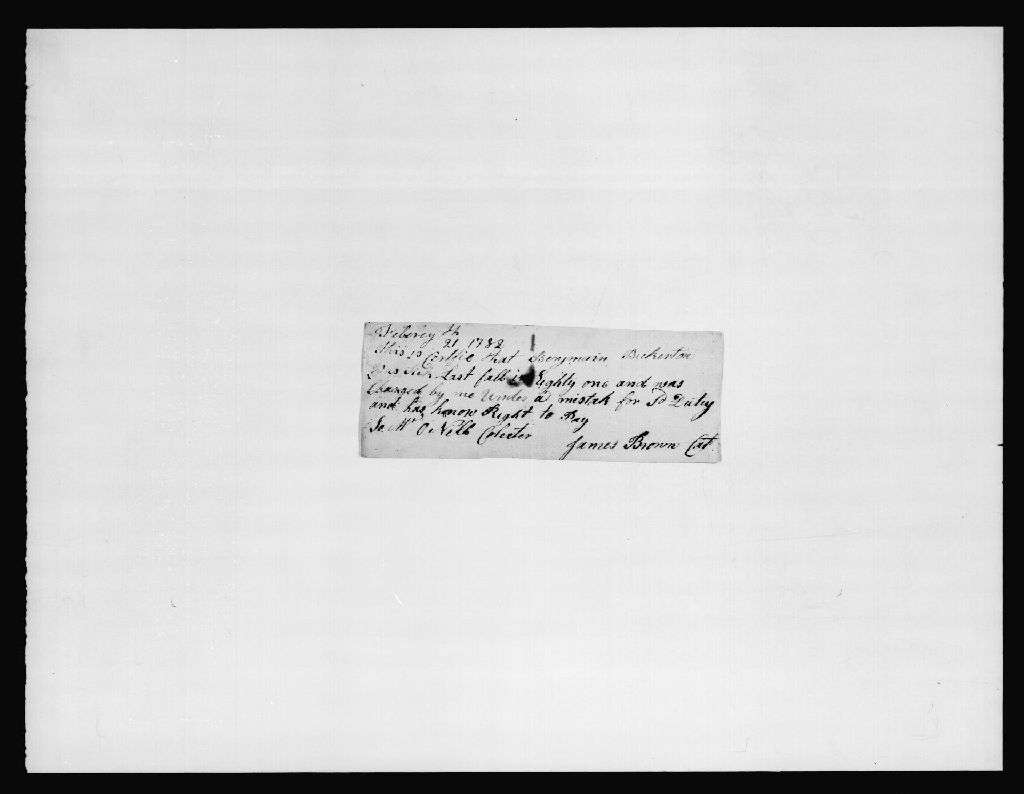 Febrery th
21 1782
this is Certifie that Benjmain Bickerton
was Sick Last fall in Eighty one and was
Charged by me Under a mistak for Dutey
and has know Right to Pay
To Mr O Nelb Colecter
James Brown Cat